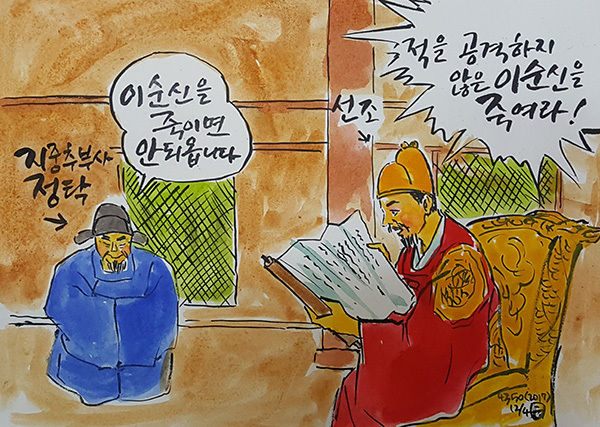 적을 공격하지
않은 이순신을
죽여라!
선조
이순신을
죽이면
안되옵니다
지중추부사
정탁
4350(2017)